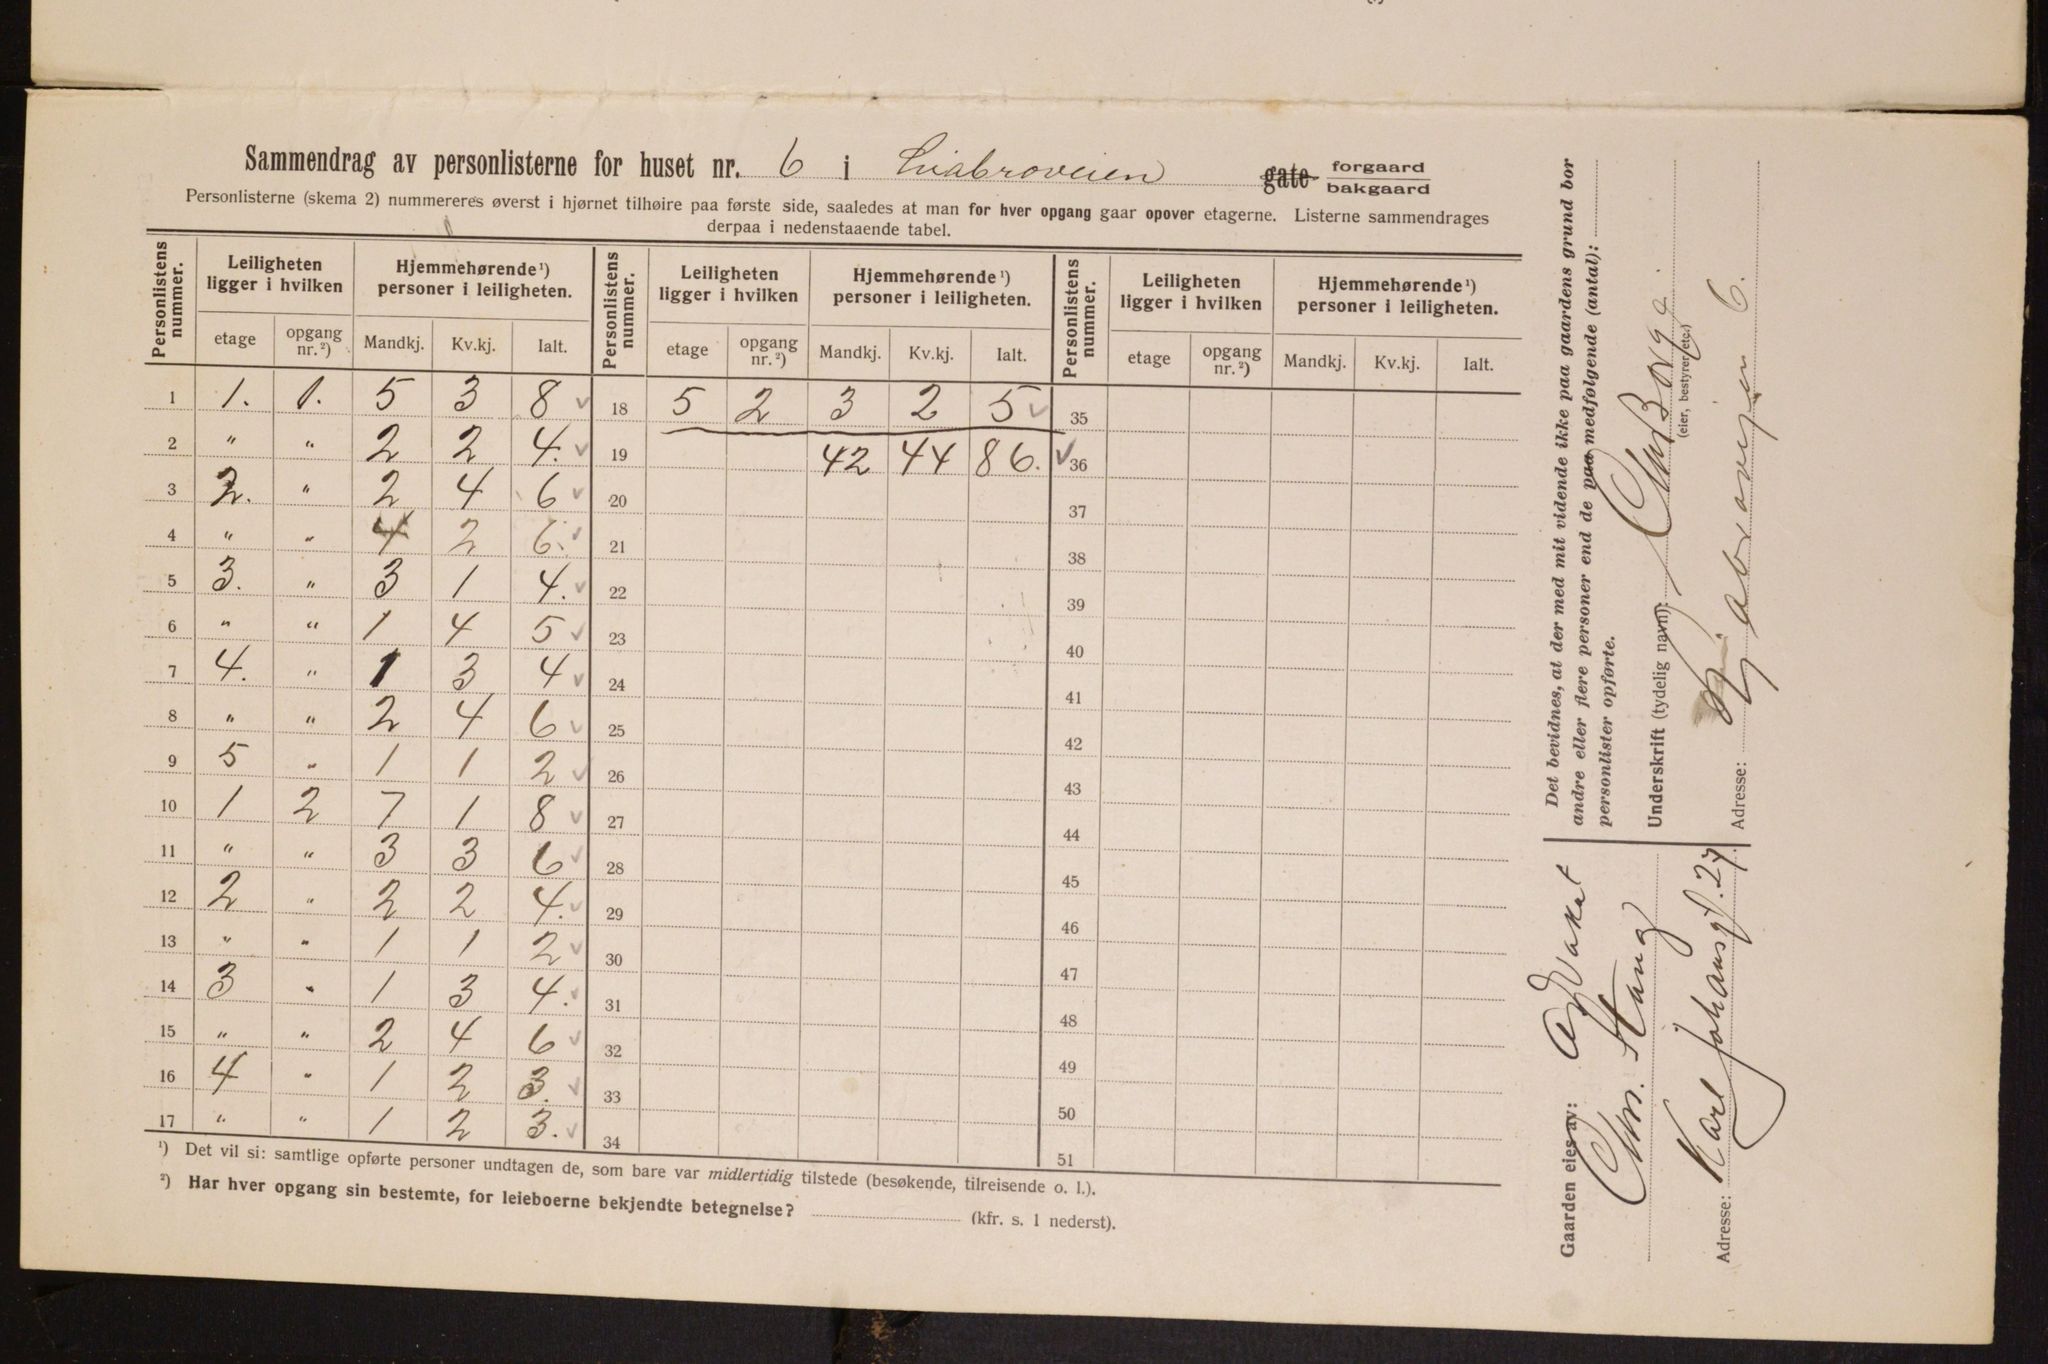 Sammendrag av personlisterne for huset nr. 6 i Liabroveien gate forgaard bakgaard
Personlisterne (skema 2) nummereres øverst i hjørnet tilhøire paa første side, saaledes at man for hver opgang gaar opover etagerne. Listerne sammendrages
derpaa i nedenstaaende tabel.
Personlistens nummer. Leiligheten ligger i hvilken Hjemmehørende ¹) personer i leiligheten. Personlistens nummer. Leiligheten ligger i hvilken Hjemmehørende ¹) personer i leiligheten. Personlistens nummer. Leiligheten ligger i hvilken Hjemmehørende ¹) personer i leiligheten.
etage opgang nr. ²) Mandkj. Kv.kj. Ialt. etage opgang nr. ²) Mandkj. Kv.kj. Ialt. etage opgang nr. ²) Mandkj. Kv.kj. Ialt.
1 1. 1. 5 3 8 18 5 2 3 2 5 35
2 " " 2 2 4. 19 42 44 86. 36
3 2. " 2 4 6 20 37
4 " " 4 2 6. 21 38
5 3. " 3 1 4. 22 39
6 " " 1 4 5 23 40
7 4. " 1 3 4 24 41
8 " " 2 4 6 25 42
9 5 " 1 1 2 26 43
10 1 2 7 1 8 27 44
11 " " 3 3 6 28 45
12 2 " 2 2 4. 29 46
13 " " 1 1 2 30 47
14 3 " 1 3 4. 31 48
15 " " 2 4 6 32 49
16 4 " 1 2 3. 33 50
17 " " 1 2 3. 34 51
¹) Det vil si: samtlige opførte personer undtagen de, som bare var midlertidig tilstede (besøkende, tilreisende o. l.).
²) Har hver opgang sin bestemte, for leieboerne bekjendte betegnelse? (kfr. s. 1 nederst).
Det bevidnes, at der med mit vidende ikke paa gaardens grund bor
andre eller flere personer end de paa medfølgende (antal):
personlister opførte.
Underskrift (tydelig navn):
(eier, bestyrer etc.)
Adresse: 6.
Gaarden eies av: Advokat
Chr. Stang
Adresse: Karl Johansgt. 27.